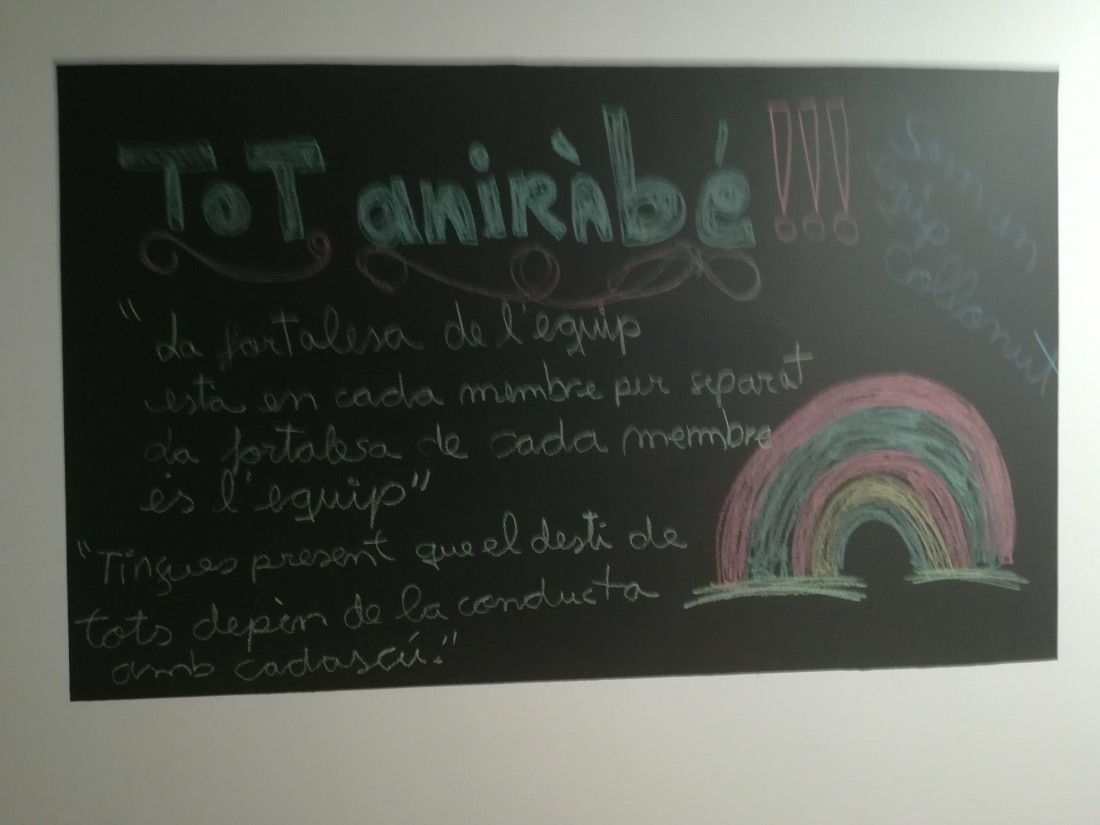 ToT aniràbé!!!
Som un
equip
collonut
"La fortalesa de l'equip
està en cada membre per separat
La fortalesa de cada membre
és l'equip"
"Tingues present que el destí de
tots depèn de la conducta
amb cadascú."